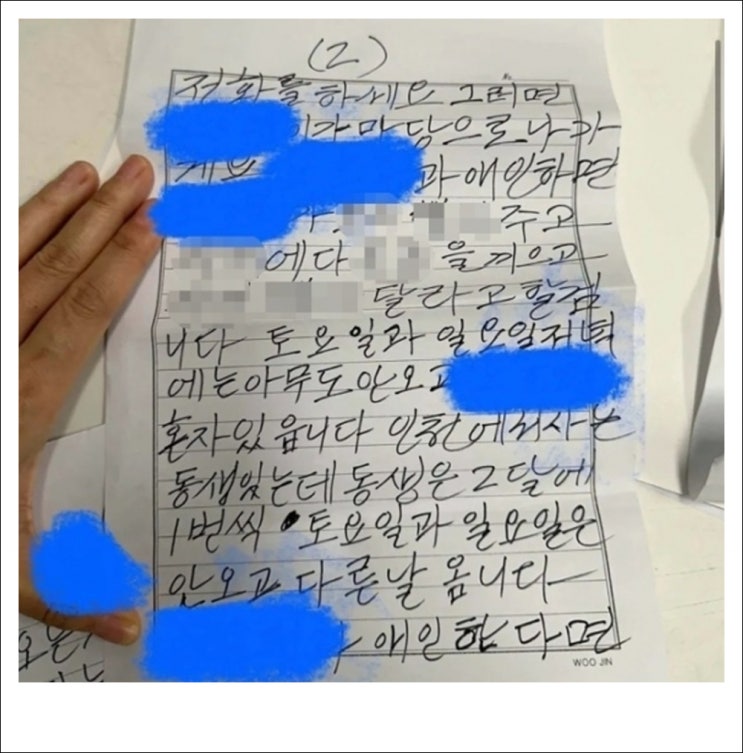 (2)
전화를하세요 그러면
이가마당으로나가
과애인하면
주고
에다 을끼우고
달라고할겁
니다 토요일과 일요일저녁
에는아무도안오고
혼자있읍니다 인천에서사는
동생있는데동생은 2달에
1번씩 토요일과 일요일은
안오고다른날 옵니다
애인한다면
WOO JIN